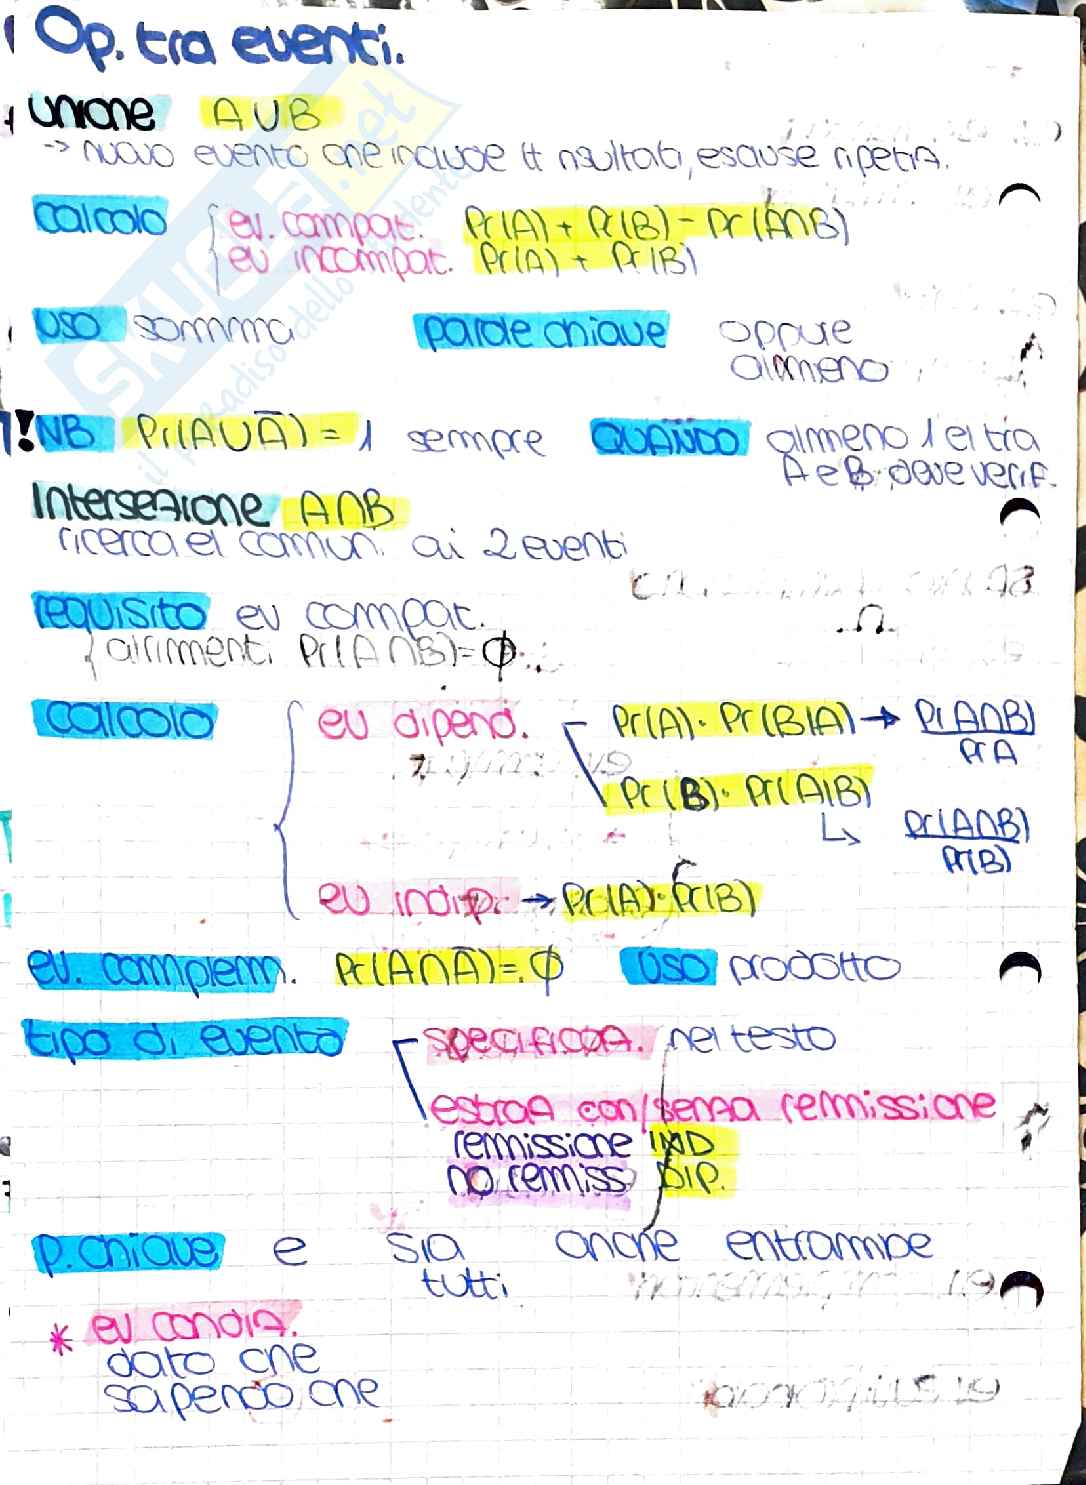 Op. tra eventi.
unione A∪B
-> nuovo evento che include tt risultati, escluse ripetiz.
calcolo { ev. compat. Pr(A) + Pr(B) - Pr(A∩B)
ev incompat. Pr(A) + Pr(B)
uso somma parole chiave oppure
almeno
!NB Pr(A∪Ā) = 1 sempre QUANDO almeno 1 el tra
A e B deve verif.
Intersezione A∩B
ricerca el comuni ai 2 eventi
requisito ev compat.
altrimenti Pr(A∩B)=∅
calcolo { ev dipend. Pr(A)·Pr(B|A) → Pr A∩B) / Pr A
Pr(B)·Pr(A|B)
↳ Pr(A∩B) / Pr(B)
ev indip. → Pr(A)·Pr(B)
ev. complem. Pr(A∩Ā)=∅ uso prodotto
tipo di evento specificaz. nel testo
estraz con/senza remissione
remissione IND
no remiss DIP.
p. chiave e sia anche entrambe
tutti
* ev condiz.
dato che
sapendo che
SKUOLA.net
il paradiso dello studente